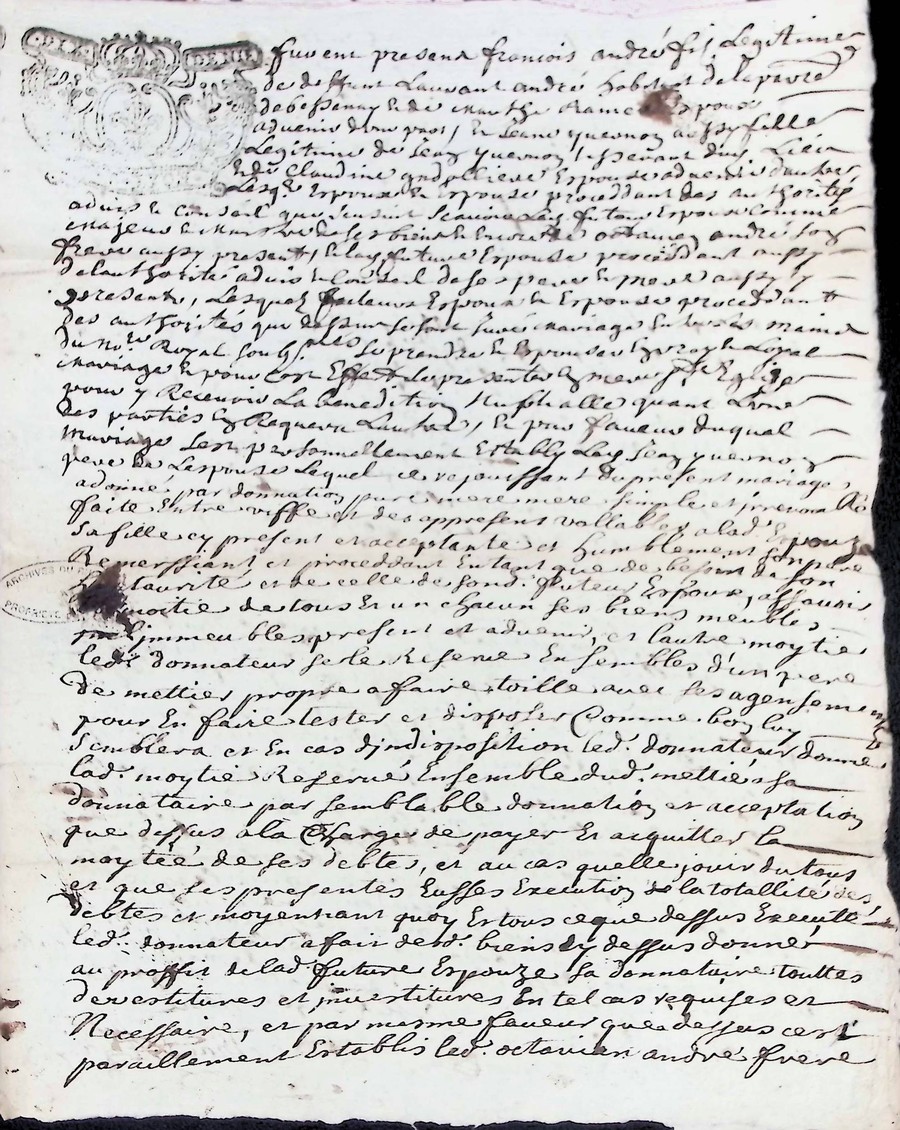 DIX DENIE
furent presens françois andré fils Legitime
de deffunt Laurant andré habitant de la parre
de bessenay et de Marthe Rame Espoux
advenir d'une part, Et Jeane yvernon aussy fille
Legitime de Jean yvernon dud. Lieu
Et de Claudine Espouse advenir d'autre,
Lesqs. Espoux et Espouse proceddant des authorités
advis et Conseil que s'ensuit scavoir Led. futeur Espoux comme
Majeur et Maistre de ses biens Et Encore de octavian andré son
frere aussy present, Et lad. future Espouse procéddant aussy
de l'authorité advis et Conseil de ses pere et mere aussy y
presents, Lesquels futeurs Espoux et Espouse proceddant
des authorités que dessus se sont juré mariage Entre les mains
du nore. Royal soubsné. Se prendre et Espouser En vray et Loyal
Mariage et pour cest Effect Se presenter En mere ste Eglise
pour y Recevoir La benediction Nuptialle quant L'une
des parties En Requerra L'autre, Et par faveur duquel
Mariage s'est personnellement Estably Led. Jean yvernon
pere de L'espouse Lequel ce rejouissant du present mariage,
a donné par donnation pure mere simple et irrevocable
faite Entre viffe et des appresent vallables a lad. Espouze
sa fille cy present et acceptante et humblement son pere
Remerssiant et proceddant Entant que de besoint de son
authaurité et de celle de sond. futeur Espoux, assavoir
moitié de tous Et un chacun ses biens meubles
immeubles present et advenir, et l'autre moytié
led. donnateur se le Reserve Ensembles d'un pere
de mettier propre a faire toille avec ses agensement
pour En faire tester et disposer Comme bon luy
semblera et En cas d'jndisposition led. donnateur donne
lad. moytié Reservé Ensemble dud. mettié a sa
donnataire par semblable donnation et acceptation
que dessus a la Charge de payer Et acquitter la
moytéé de ses debtes, et au cas quelle jouir du tous
et que ses presentes Eusses Execution de la totallité des
debtes et moyennant quoy Et tous ce que dessus Executté
led. donnateur a fait desd. biens Cy dessus donné
au proffit de lad. future Espouze sa donnataire touttes
devestitures et jnvestitures En tel cas requises et
Necessaire, et par mesme faveur que dessus cest
paraillement Establis led. octavian andré frere
ARCHIVES DU
PROPRIETE